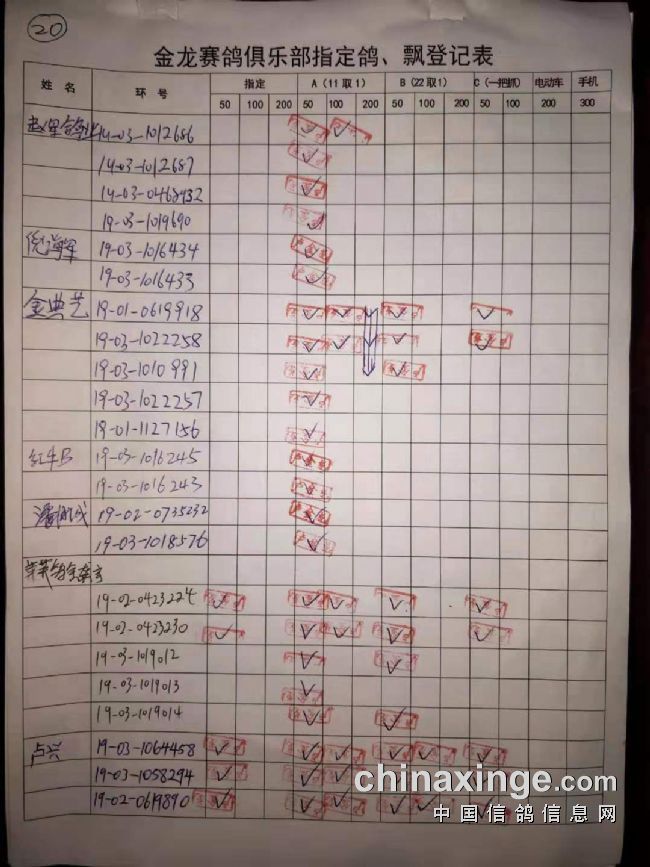 20
金龙赛鸽俱乐部指定鸽、飘登记表
姓 名 环 号 指定 A (11取1) B (22取1) C (一把抓) 电动车 手机
50 100 200 50 100 200 50 100 200 50 100 200 300
14-03-1012686
14-03-1012687
14-03-0468932
19-03-1019690
倪海军 19-03-1016434
19-03-1016433
金典艺 19-01-0619918
19-03-1022258
19-03-1010991
19-03-1022257
19-01-1127156
红牛B 19-03-1016245
19-03-1016243
19-02-0735232
19-03-1018576
19-02-0423224
19-02-0423230
19-03-1019012
19-03-1019013
19-03-1019014
占兴 19-03-1064458
19-03-1058294
19-02-0619890
chinaxinge.com
中国信鸽信息网